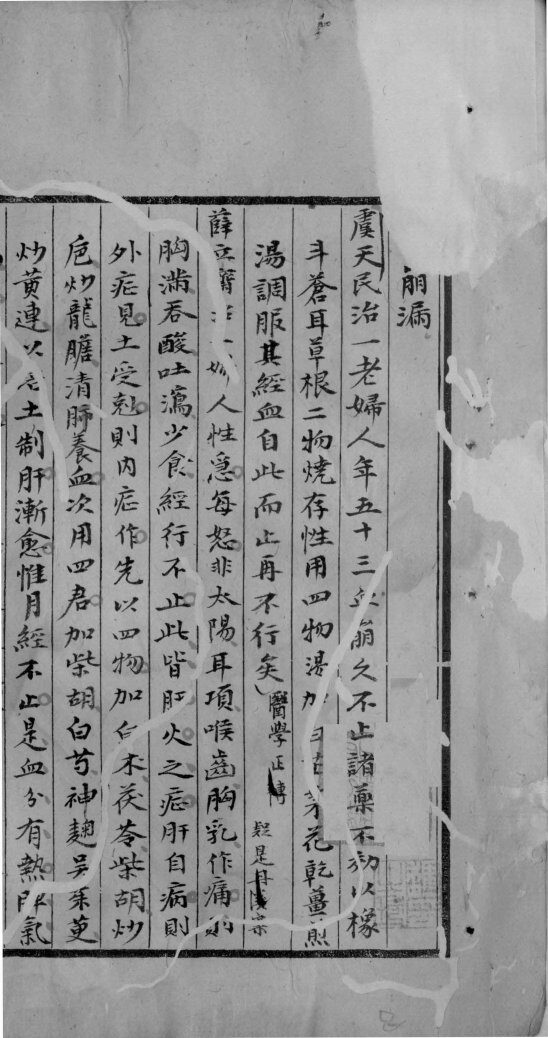 崩漏
虞天民治一老婦人年五十三血崩久不止諸藥不効以橡
斗蒼耳草根二物燒存性用四物湯加白芷茅花乾薑煎
湯調服其經血自此而止再不行矣 醫學正傳 疑是丹溪案
薛立齋治一婦人性急每怒非太陽耳項喉齒胸乳作痛則
胸滿吞酸吐瀉少食經行不止此皆肝火之症肝自病則
外症見土受剋則內症作先以四物加白朮茯苓柴胡炒
梔炒龍膽清肝養血次用四君加柴胡白芍神麯吳茱萸
炒黃連以培土制肝漸愈惟月經不止是血分有熱脾氣